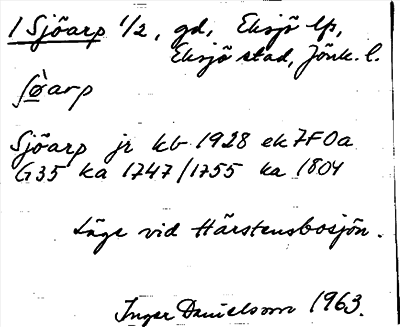 1 Sjöarp 1/2, gd, Eksjö lfs,
Eksjö stad, Jönk. l.
ʃø̀arp
Sjöarp jr kb 1928 ek 7F0a
G35 ka 1747/1755 ka 1804
Läge vid Härstensbosjön.
Inger Danielsson 1963.